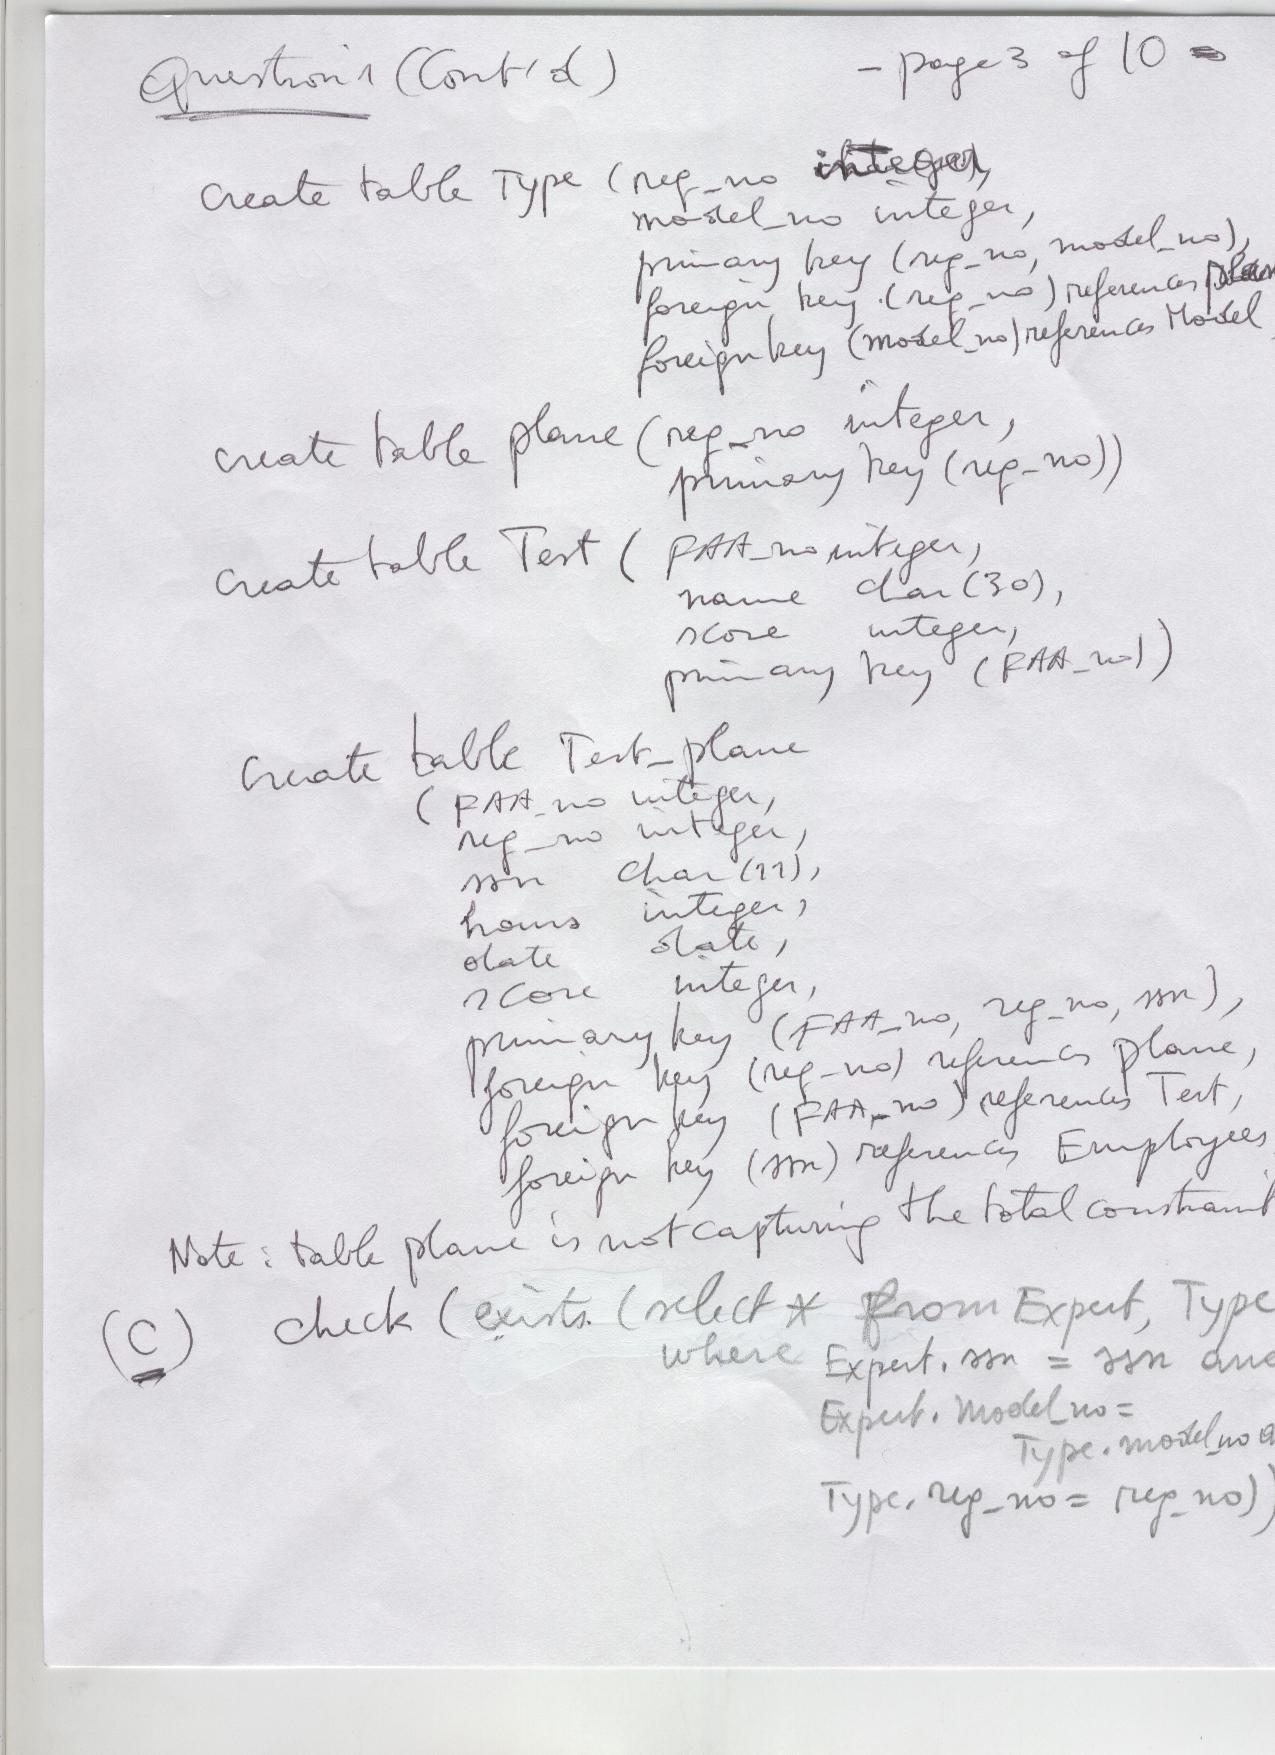 Question 1 (Cont'd) - page 3 of 10 -
create table Type (reg_no integer,
model_no integer,
primary key (reg_no, model_no),
foreign key (reg_no) references plan
foreign key (model_no) references Model
create table plane (reg_no integer,
primary key (reg_no))
create table Test ( FAA_no integer,
name char(30),
score integer,
primary key (FAA_no))
create table Test_plane
(FAA_no integer,
reg_no integer,
ssn char(11),
hours integer,
date date,
score integer,
primary key (FAA_no, reg_no, ssn),
foreign key (reg_no) references plane,
foreign key (FAA_no) references Test,
foreign key (ssn) references Employees
Note: table plane is not capturing the total constraint
(C) check (exists (select * from Expert, Type
where Expert.ssn = ssn and
Expert.Model_no =
Type.model_no a
Type.reg_no = reg_no))